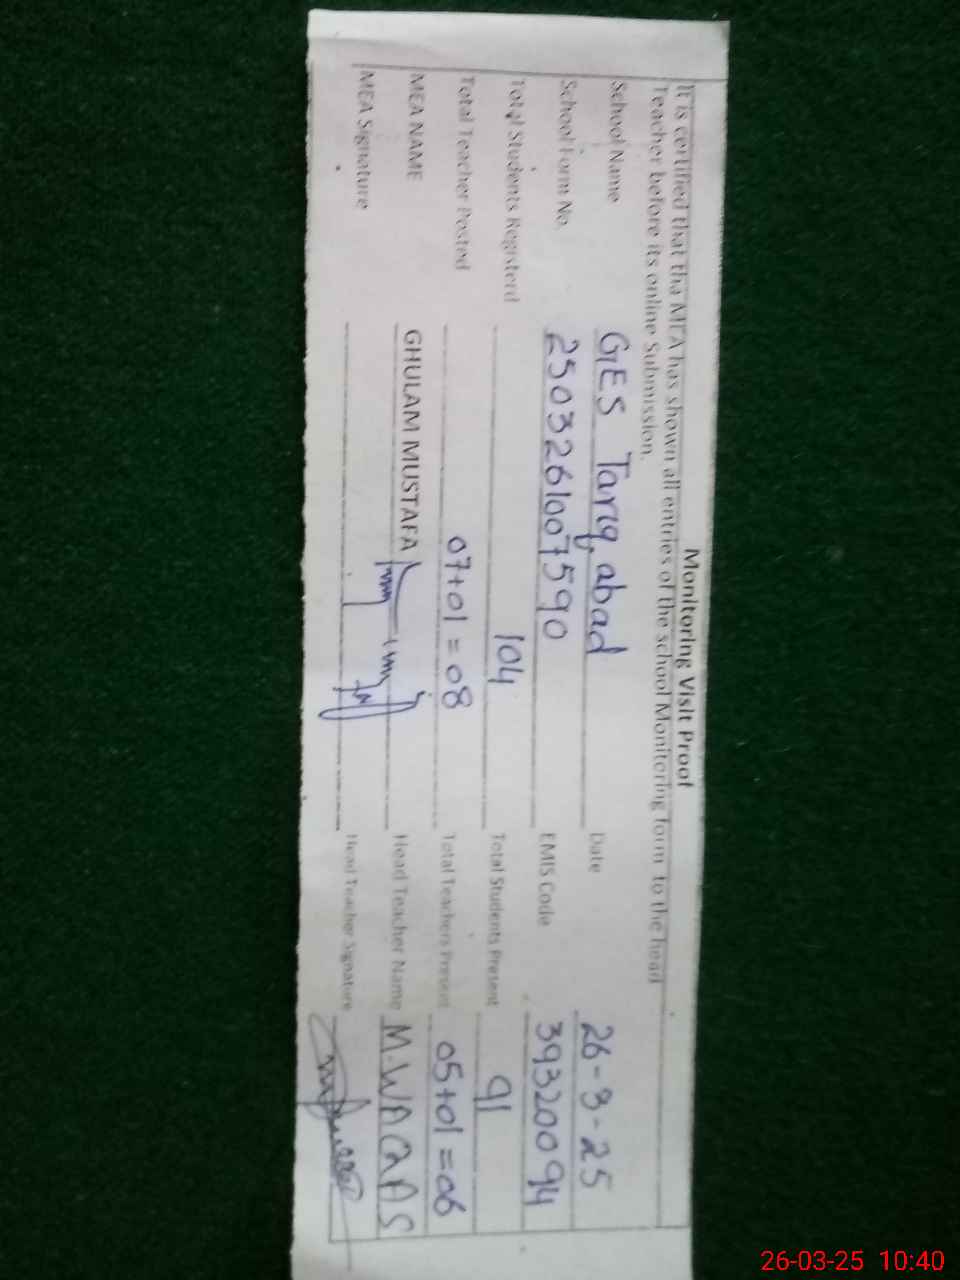 Monitoring Visit Proof
It is certified that tha MEA has shown all entries of the school Monitoring form to the head
Teacher before its online Submission.
School Name GES Tariq abad Date 26-3-25
School Form No. 2503261007590 EMIS Code 39320094
Total Students Registerd 104 Total Students Present 91
Total Teacher Posted 07+01=08 Total Teachers Present 05+01=06
MEA NAME GHULAM MUSTAFA Head Teacher Name M.WAQAS
MEA Signature Head Teacher Signature
26-03-25 10:40